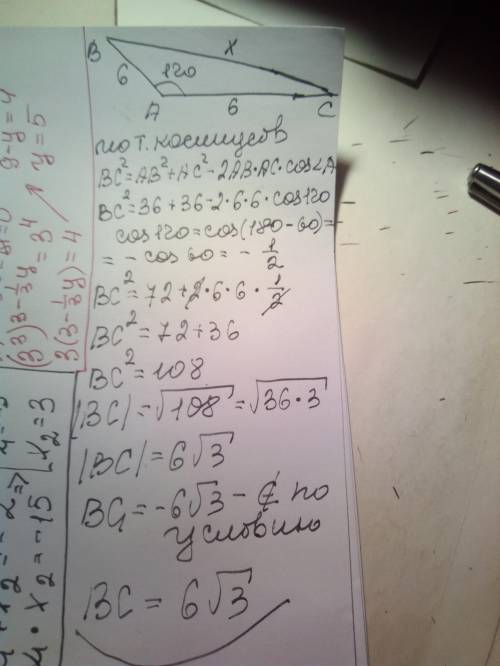 B
x
6
120
A
6
C
по т. косинусов
BC²=AB²+AC²-2AB·AC·cos∠A
BC²=36+36-2·6·6·cos120
cos120=cos(180-60)=
=-cos60=-1/2
BC²=72+2·6·6·1/2
BC²=72+36
BC²=108
|BC|=√108=√36·3
|BC|=6√3
BC₁=-6√3-∉ по
условию
BC=6√3
9-y=4
(3³)3-1/3y=3⁴
y=5
3(3-1/3y)=4
x₂=-2⇒
x₂=-15
x₂=3